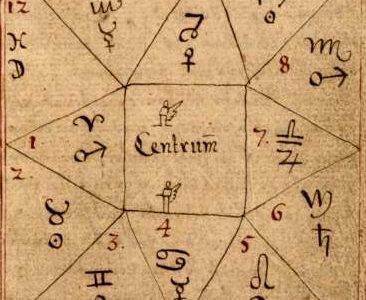 12
☿
♓
☽
♀
☉
♏
8
♂
1
♈
♂
Centrum̄
7.
♎
♃
2.
♉
☉
3.
4
6
♄
5
♊
♋
♌